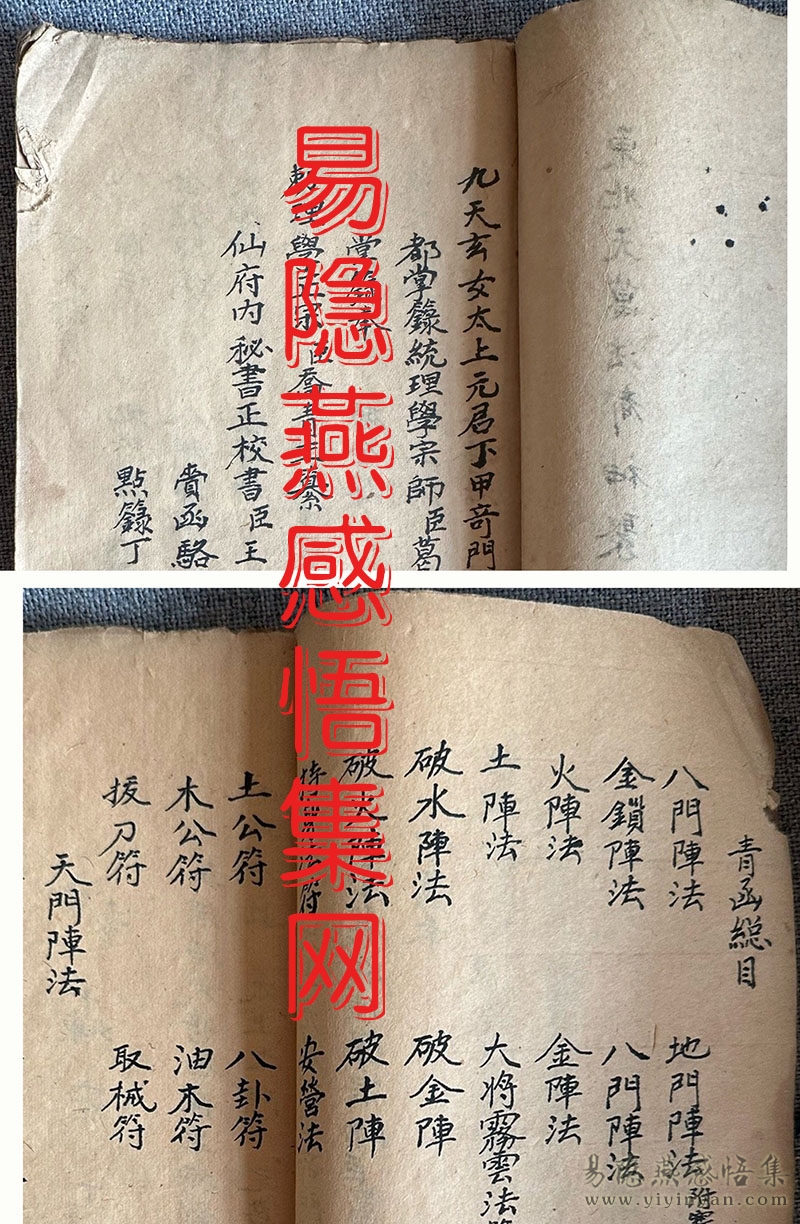 九天玄女太上元君丁甲奇門
都掌籙統理學宗師臣葛
仙府內秘書正校書臣王
賫函駱
點籙丁
易隐燕感悟集网
青函總目
八門陣法
地門陣法附寨
金鎖陣法
八門陣法
火陣法
金陣法
土陣法
大將霧雲法
破水陣法
破金陣
破火陣法
破土陣
安營法
土公符
八卦符
木公符
油木符
拔刀符
取械符
天門陣法
易隐燕感悟集
www.yiyinyan.com